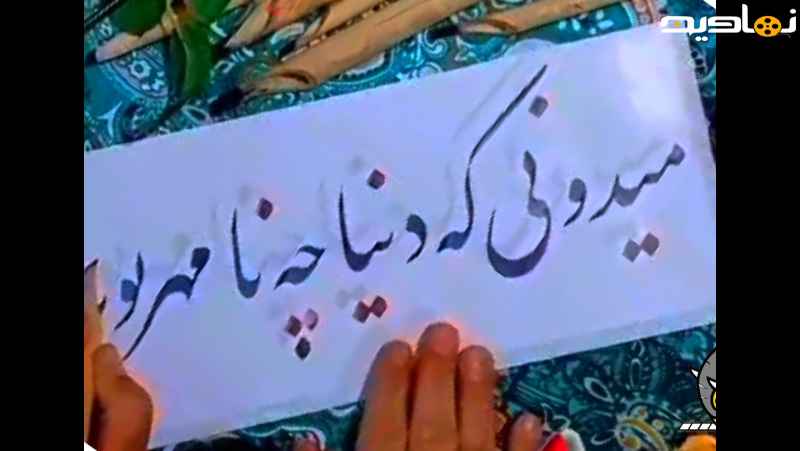 نمادیه
میدونی که دنیا چه نا مهربو